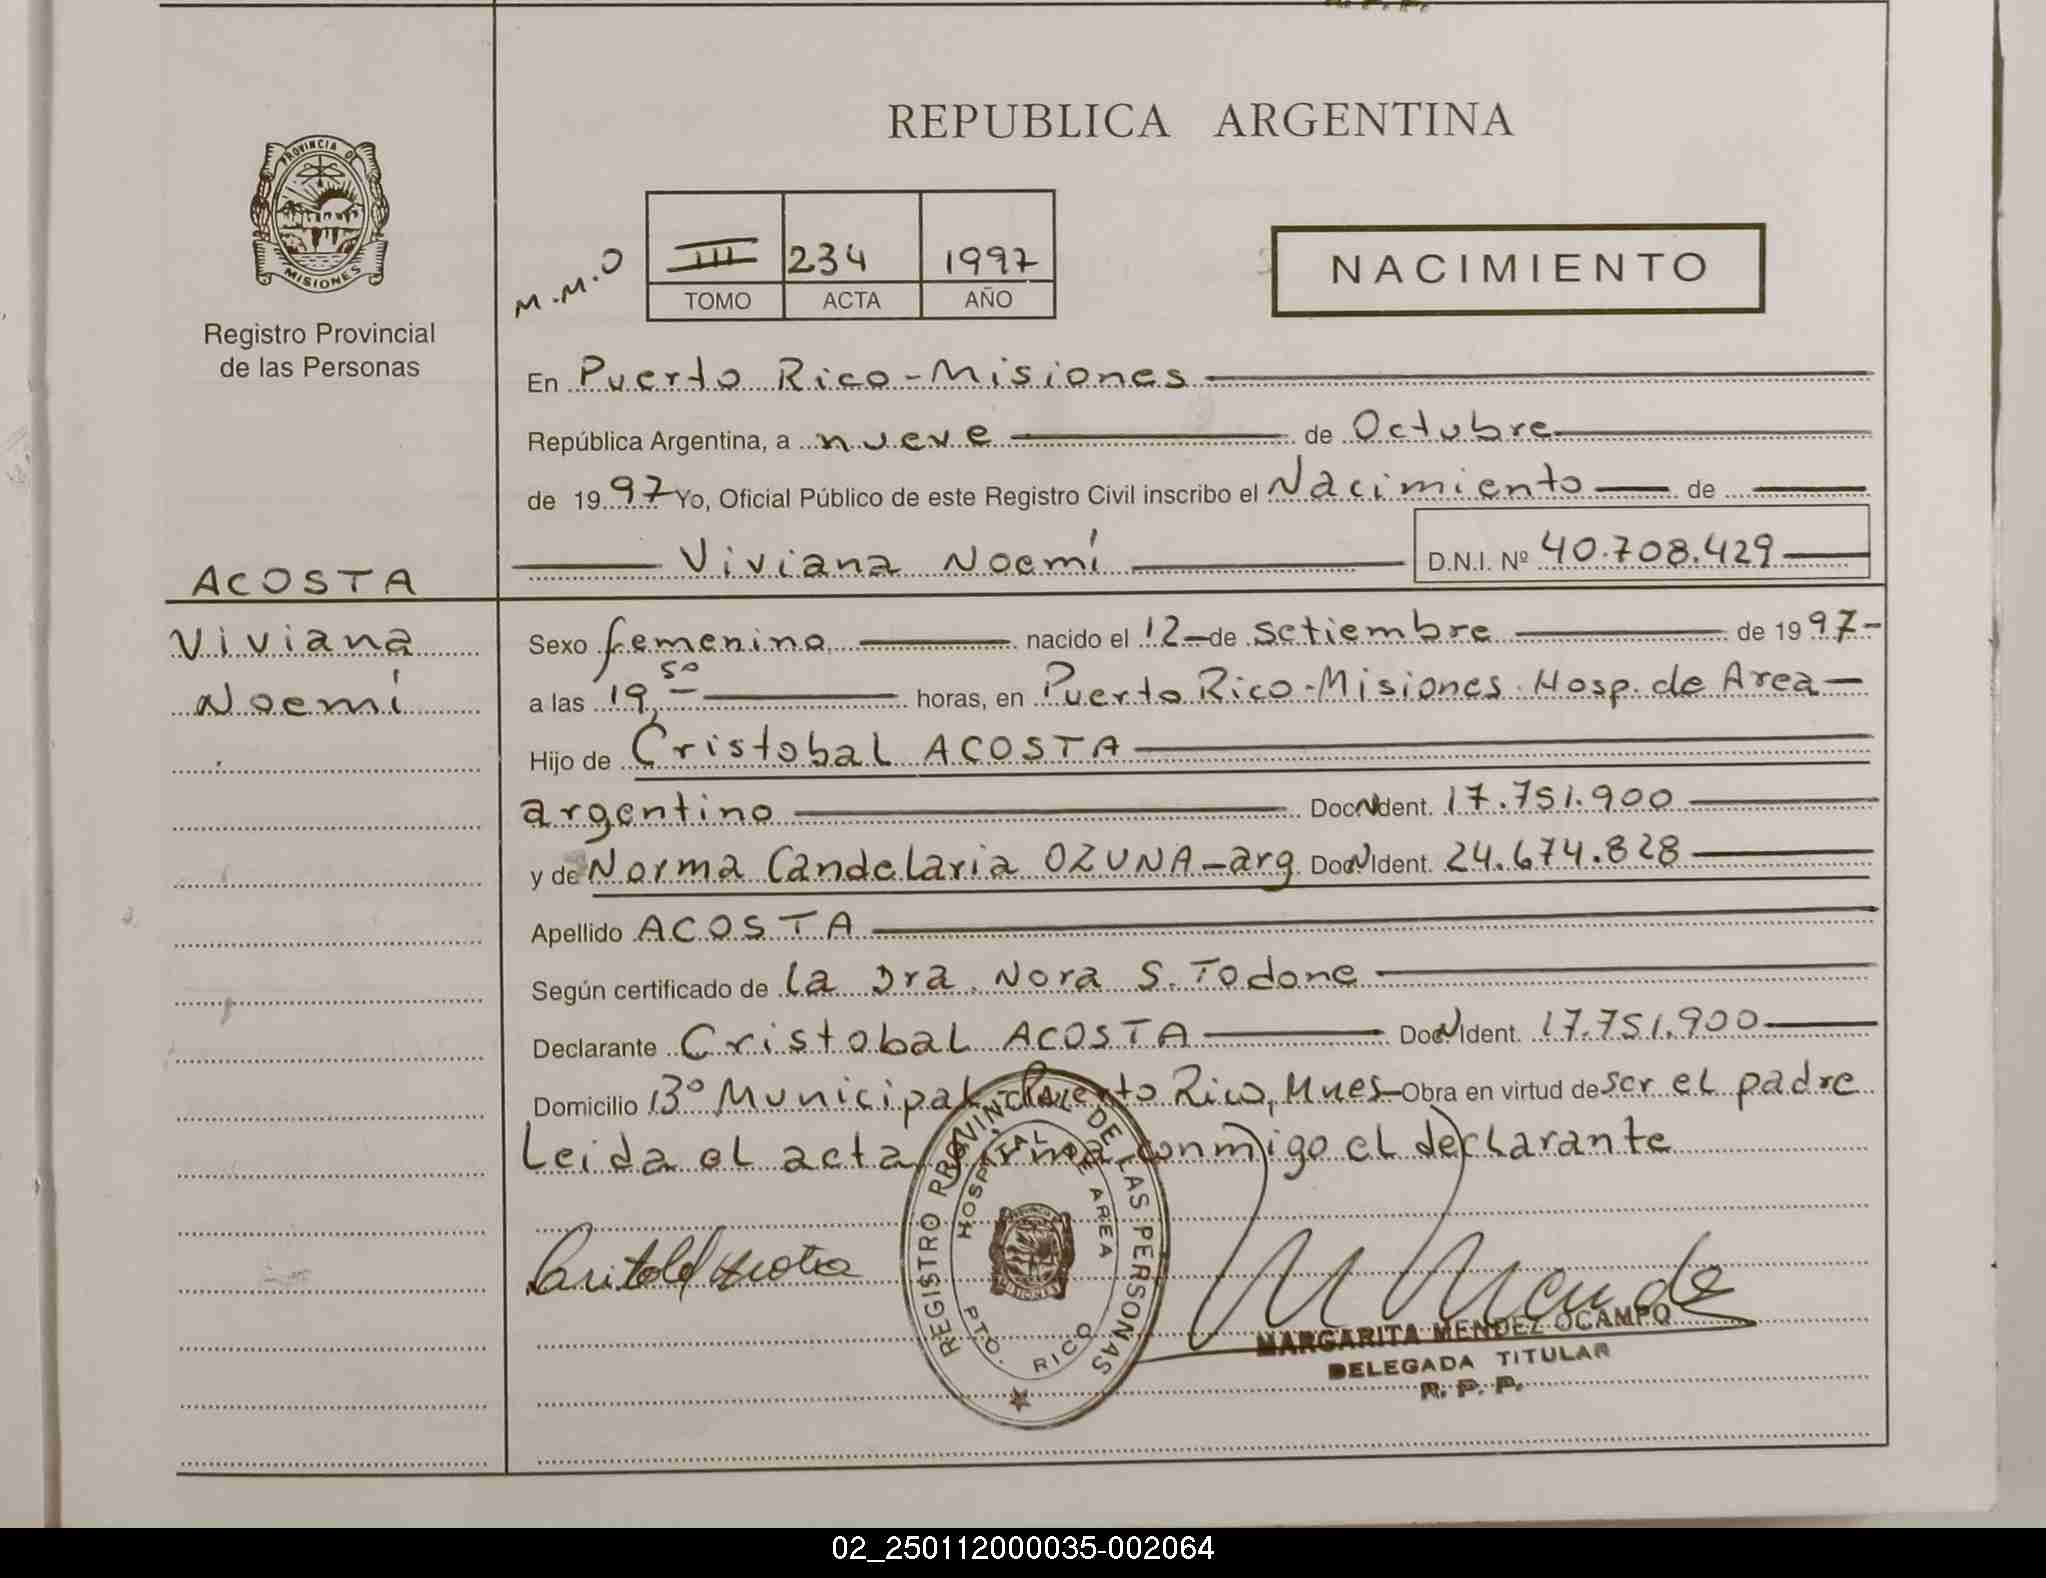 REPUBLICA ARGENTINA
PROVINCIA DE
MISIONES
Registro Provincial
de las Personas
M.M.O
III 234 1997
TOMO ACTA AÑO
NACIMIENTO
En Puerto Rico-Misiones
República Argentina, a nueve de Octubre
de 1997 Yo, Oficial Público de este Registro Civil inscribo el Nacimiento de
Viviana Noemí D.N.I. Nº 40.708.429
ACOSTA
Viviana
Noemí
Sexo femenino nacido el 12 de setiembre de 1997-
a las 19,50 horas, en Puerto Rico-Misiones Hosp. de Area
Hijo de Cristobal ACOSTA
argentino Doc N Ident. 17.751.900
y de Norma Candelaria OZUNA-arg Doc N Ident. 24.674.828
Apellido ACOSTA
Según certificado de la Dra. Nora S. Todone
Declarante Cristobal ACOSTA Doc N Ident. 17.751.900
Domicilio Bº Municipal-Puerto Rico, Mnes-Obra en virtud de ser el padre
Leida el acta, firma conmigo el declarante
REGISTRO PROVINCIAL DE LAS PERSONAS
HOSPITAL DE AREA
PTO. RICO
MARGARITA MENDEZ OCAMPO
DELEGADA TITULAR
R. P. P.
02_250112000035-002064